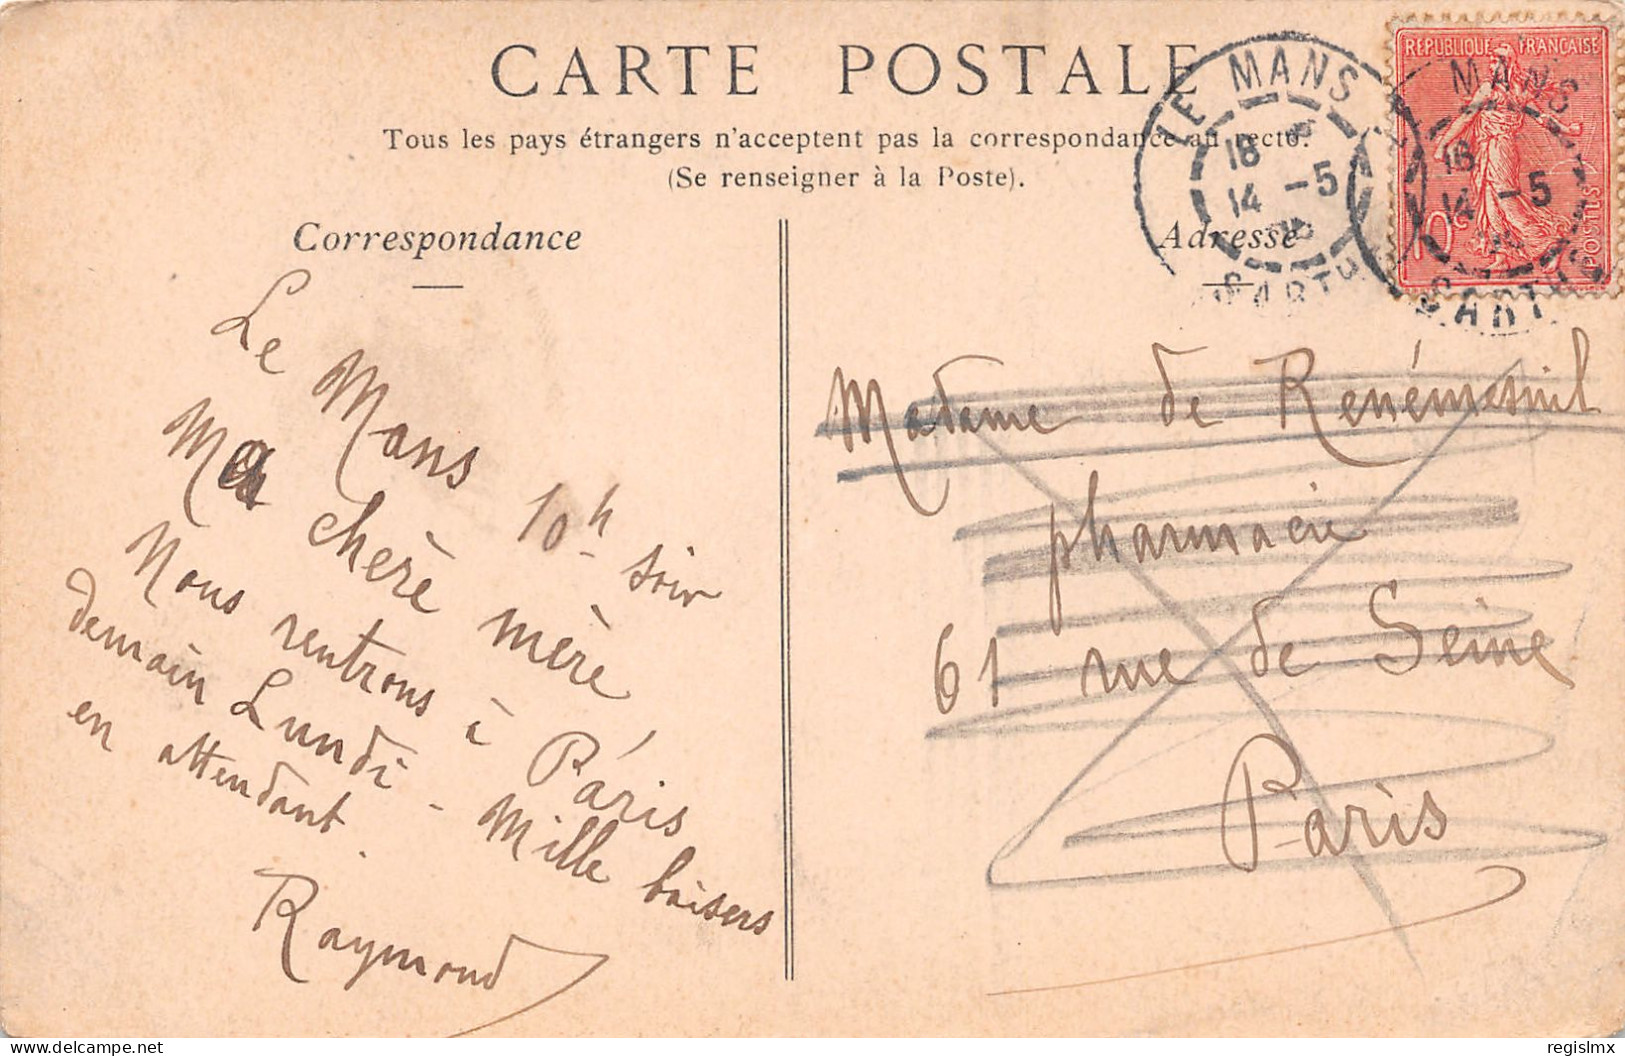 CARTE POSTALE
Tous les pays étrangers n'acceptent pas la correspondance au recto.
(Se renseigner à la Poste).
Correspondance
Adresse
LE MANS
18
14 -5
SARTHE
RÉPUBLIQUE FRANÇAISE
10c
POSTES
LE MANS
18
14 -5
SARTHE
Le Mans 10h soir
Ma chère mère
Nous rentrons à Paris
demain Lundi - Mille baisers
en attendant.
Raymond
Madame de Renémesnil
pharmacie
61 rue de Seine
Paris
delcampe.net
regislmx